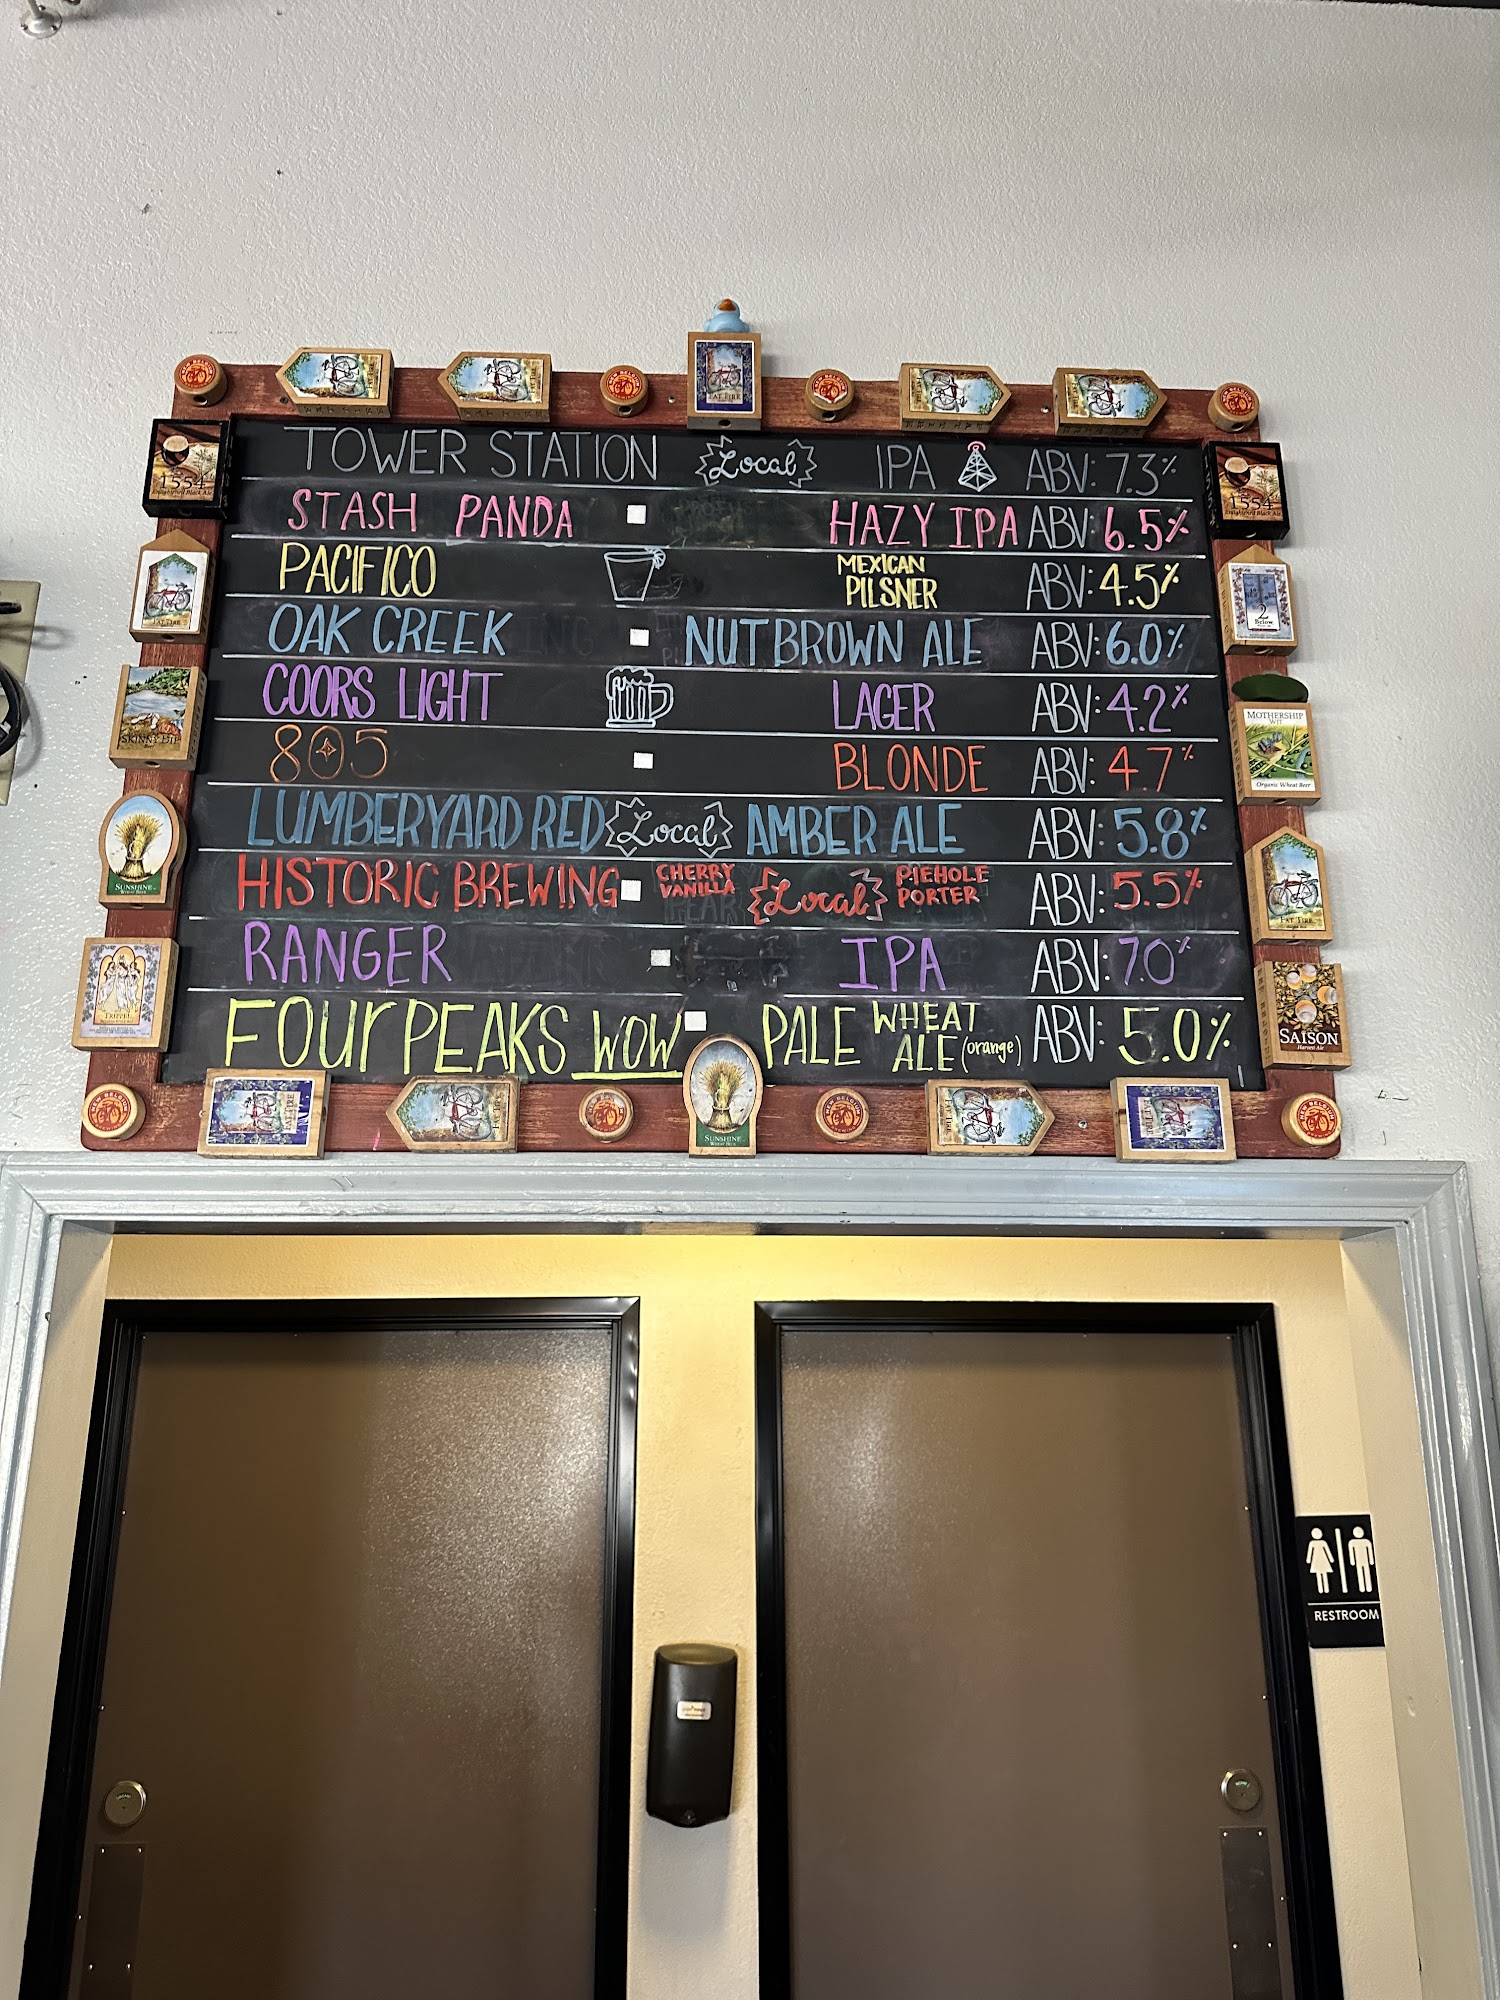 TOWER STATION Local IPA ABV: 7.3%
STASH PANDA HAZY IPA ABV: 6.5%
PACIFICO MEXICAN PILSNER ABV: 4.5%
OAK CREEK NUT BROWN ALE ABV: 6.0%
COORS LIGHT LAGER ABV: 4.2%
805 BLONDE ABV: 4.7%
LUMBERYARD RED Local AMBER ALE ABV: 5.8%
HISTORIC BREWING CHERRY VANILLA Local PIEHOLE PORTER ABV: 5.5%
RANGER IPA ABV: 7.0%
FOUR PEAKS WOW PALE WHEAT ALE (orange) ABV: 5.0%
FAT TIRE
NEW BELGIUM
1554
Enlightened Black Ale
1554
Enlightened Black Ale
FAT TIRE
2 Below
SKINNY DIP
MOTHERSHIP
WIT
Organic Wheat Beer
SUNSHINE
WHEAT BEER
FAT TIRE
TRIPPEL
SAISON
Harvest Ale
SUNSHINE
WHEAT BEER
NEW BELGIUM
RESTROOM